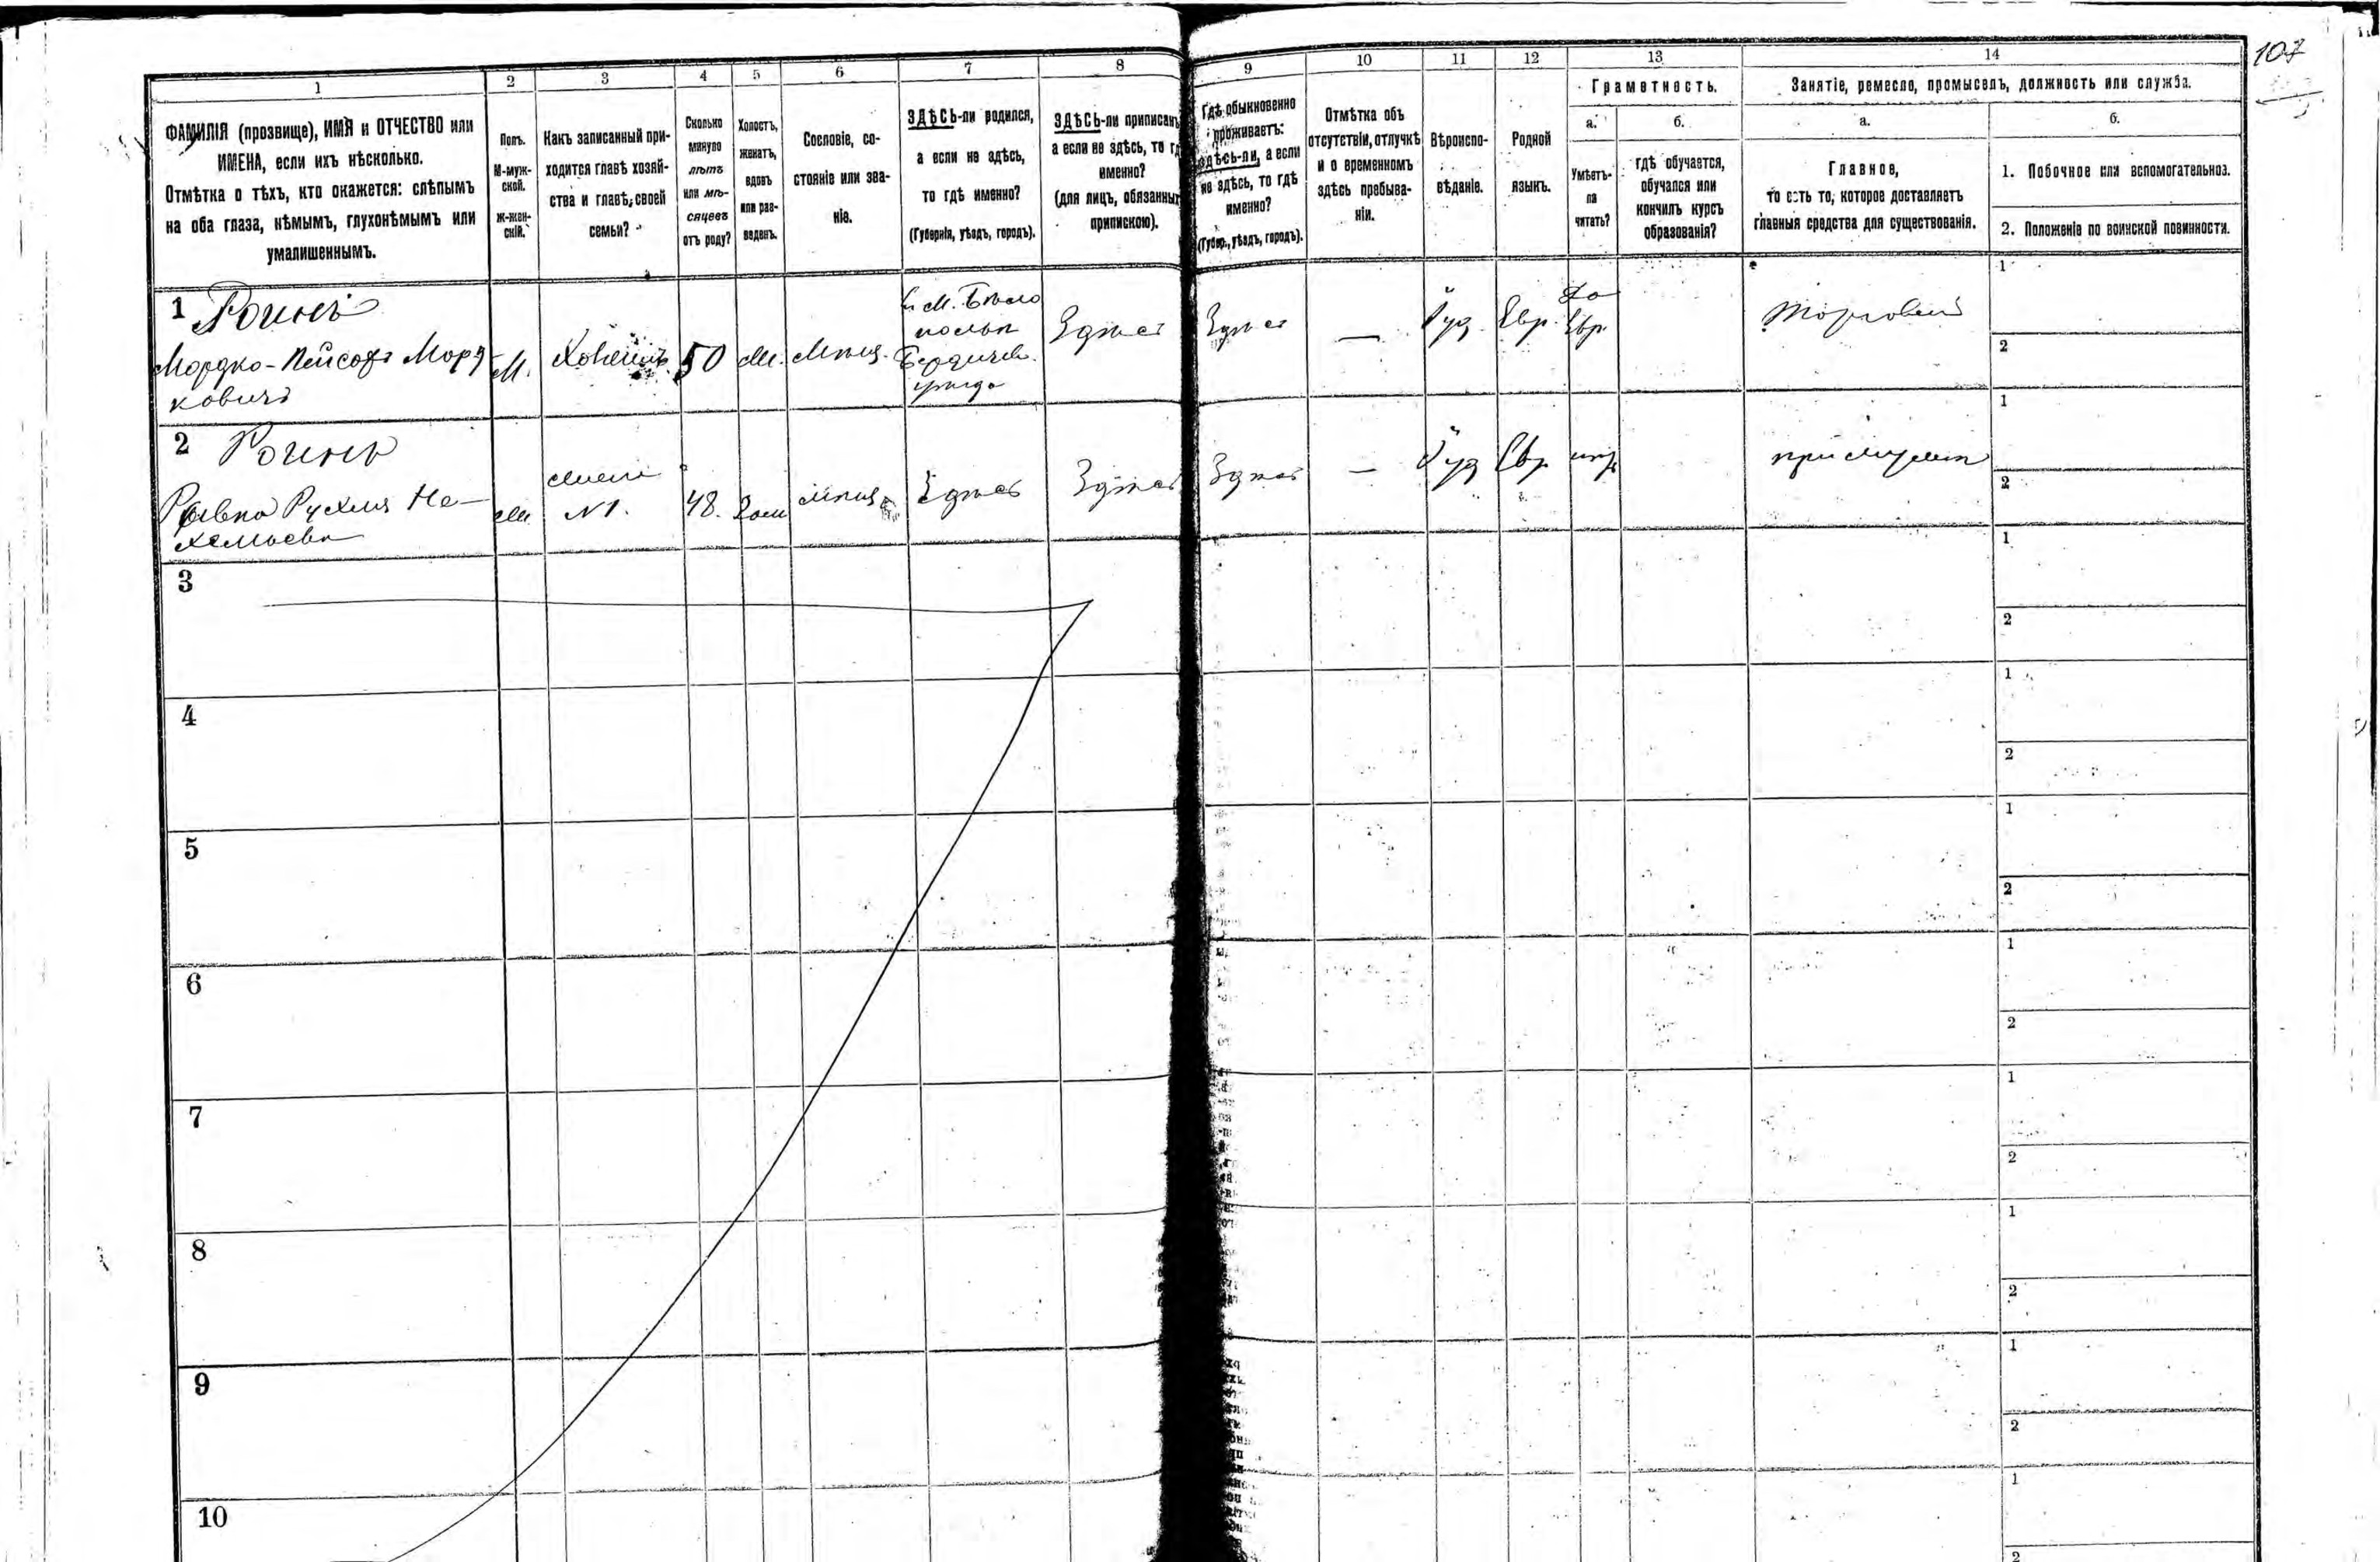 107
1
2
3
4
5
6
7
8
9
10
11
12
13
14
ФАМИЛІЯ (прозвище), ИМЯ и ОТЧЕСТВО или
ИМЕНА, если ихъ нѣсколько.
Отмѣтка о тѣхъ, кто окажется: слѣпымъ
на оба глаза, нѣмымъ, глухонѣмымъ или
умалишеннымъ.
Полъ.
М-муж-
ской.
Ж-жен-
скій.
Какъ записанный при-
ходится главѣ хозяй-
ства и главѣ своей
семьи?
Сколько
минуло
лѣтъ
или мѣ-
сяцевъ
отъ роду?
Холостъ,
женатъ,
вдовъ
или раз-
веденъ.
Сословіе, со-
стояніе или зва-
ніе.
ЗДѢСЬ-ли родился,
а если не здѣсь,
то гдѣ именно?
(Губернія, уѣздъ, городъ).
ЗДѢСЬ-ли приписанъ,
а если не здѣсь, то гдѣ
именно?
(для лицъ, обязанныхъ
припискою).
Гдѣ обыкновенно
проживаетъ:
здѣсь-ли, а если
не здѣсь, то гдѣ
именно?
(Губер., уѣздъ, городъ).
Отмѣтка объ
отсутствіи, отлучкѣ
и о временномъ
здѣсь пребыва-
ніи.
Вѣроиспо-
вѣданіе.
Родной
языкъ.
Грамотность.
а.
Умѣетъ-
ли
читать?
б.
гдѣ обучается,
обучался или
кончилъ курсъ
образованія?
Занятіе, ремесло, промыселъ, должность или служба.
а.
Главное,
то есть то, которое доставляетъ
главныя средства для существованія.
б.
1. Побочное или вспомогательное.
2. Положеніе по воинской повинности.
1
Мордко-Пейсохъ Морд-
ковичъ
М.
Хозяинъ
50
Здѣсь
Здѣсь
—
Іуд.
Евр.
Да
Евр.
Торговецъ
1
2
2
N 1.
48.
Здѣсь
Здѣсь
Здѣсь
—
Іуд
Евр
при мужѣ
1
2
3
1
2
4
1
2
5
1
2
6
1
2
7
1
2
8
1
2
9
1
2
10
1
2